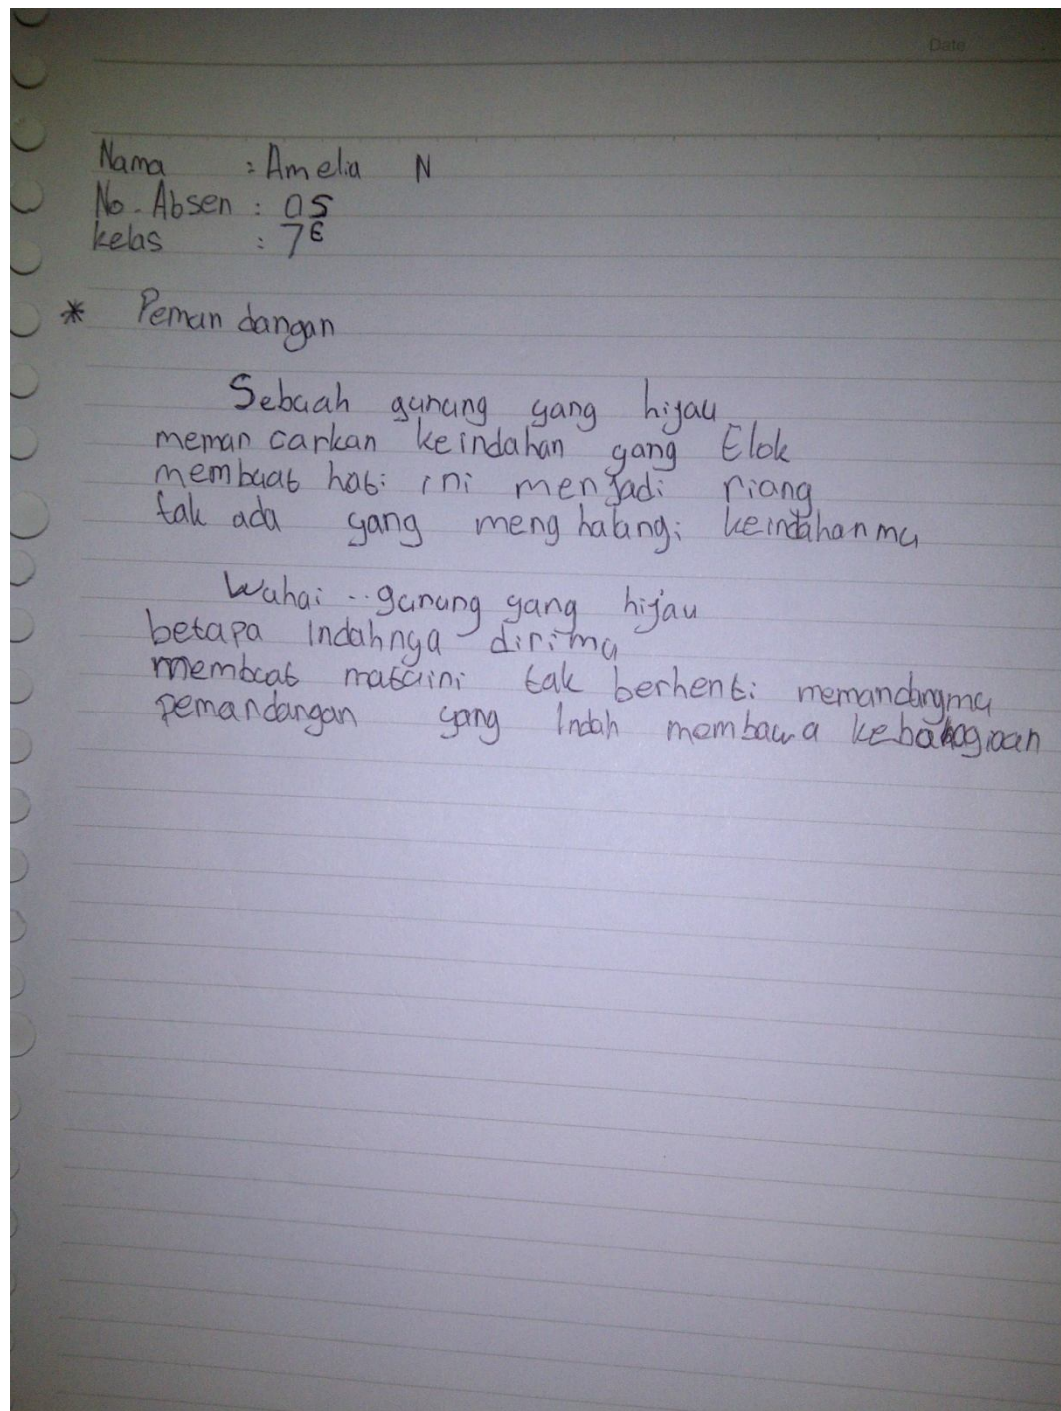 Date
Nama : Amelia N
No. Absen : 05
kelas : 7E
* Pemandangan
Sebuah gunung yang hijau
memancarkan keindahan yang Elok
membuat hati ini menjadi riang
tak ada yang menghalangi keindahanmu
Wahai .. gunung yang hijau
betapa Indahnya dirimu
membuat mata ini tak berhenti memandangmu
pemandangan yang Indah membawa kebahagiaan